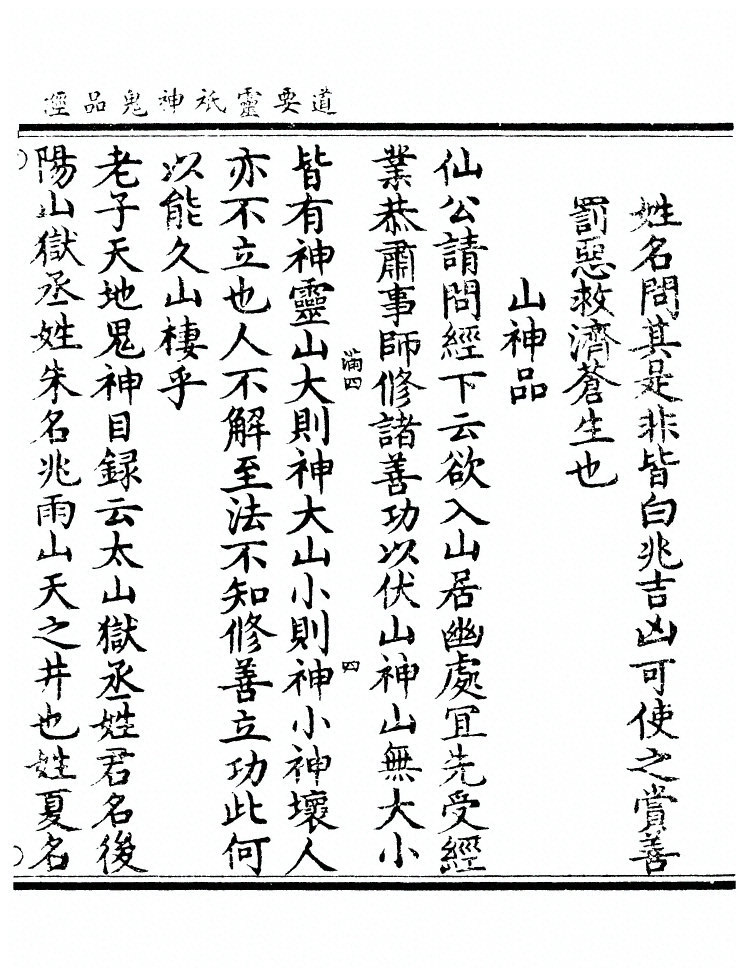 道要靈祇神鬼品經
姓名問其是非皆白兆吉凶可使之賞善
罰惡救濟蒼生也
山神品
仙公請問經下云欲入山居幽處冝先受經
業恭肅事師修諸善功以伏山神山無大小
皆有神靈山大則神大山小則神小神壞人
滿四
四
亦不立也人不解至法不知修善立功此何
以能久山棲乎
老子天地鬼神目録云太山獄丞姓君名後
陽山獄丞姓朱名兆雨山天之井也姓夏名